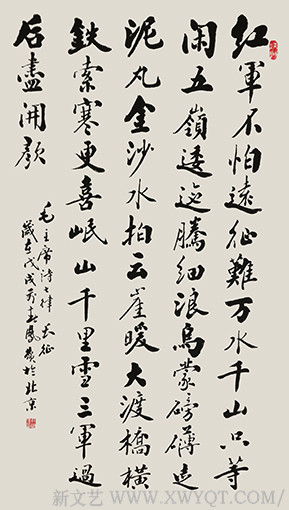 红軍不怕遠征難万水千山只等
闲五嶺逶迤騰细浪烏蒙磅礴走
泥丸金沙水拍云崖暖大渡橋横
鉄索寒更喜岷山千里雪三軍過
后盡開颜
毛主席诗七律长征
歲在戊戌春於北京
新文艺 - WWW.XWYQT.COM/